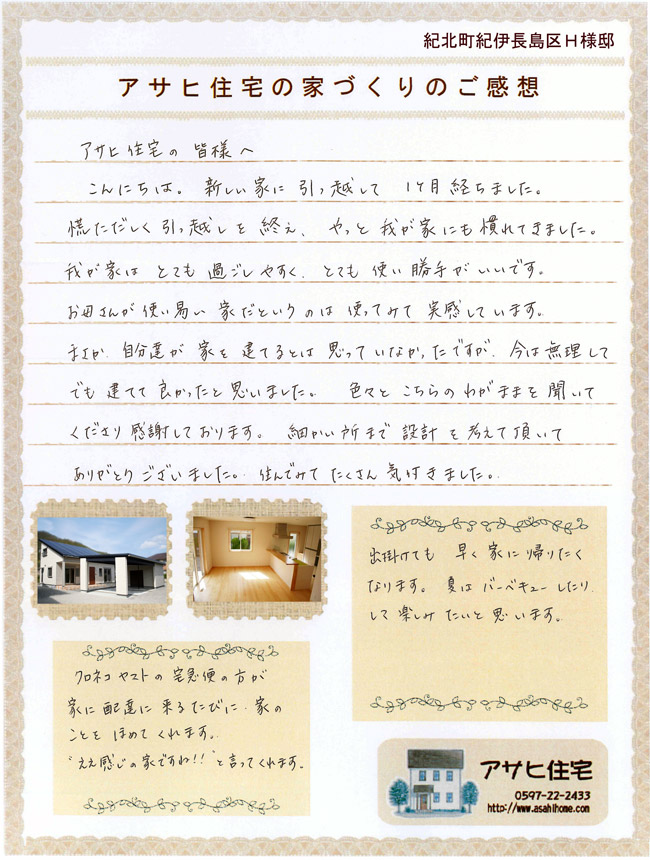 紀北町紀伊長島区H様邸
アサヒ住宅の家づくりのご感想
アサヒ住宅の 皆様へ
こんにちは。 新しい家に 引っ越して 1ヶ月 経ちました。
慌ただしく 引っ越しを 終え、 やっと 我が家にも 慣れてきました。
我が家は とても 過ごしやすく、 とても 使い 勝手が いいです。
お母さんが 使い易い 家だというのは 使ってみて 実感しています。
まさか 自分達が 家を 建てるとは 思っていなかったですが、 今は 無理して
でも 建てて 良かったと 思いました。 色々と こちらの わがままを 聞いて
くださり 感謝しております。 細かい 所まで 設計 を 考えて 頂いて
ありがとうございました。 住んでみて たくさん 気付きました。
出掛けても 早く 家に 帰りたく
なります。 夏は バーベキューしたり
して 楽しみ たいと 思います。
クロネコ ヤマトの 宅急便の 方が
家に 配達に 来るたびに、 家の
ことを ほめて くれます。
"ええ感じの 家ですね!!" と 言ってくれます。
アサヒ住宅
0597-22-2433
http://www.asahihome.com